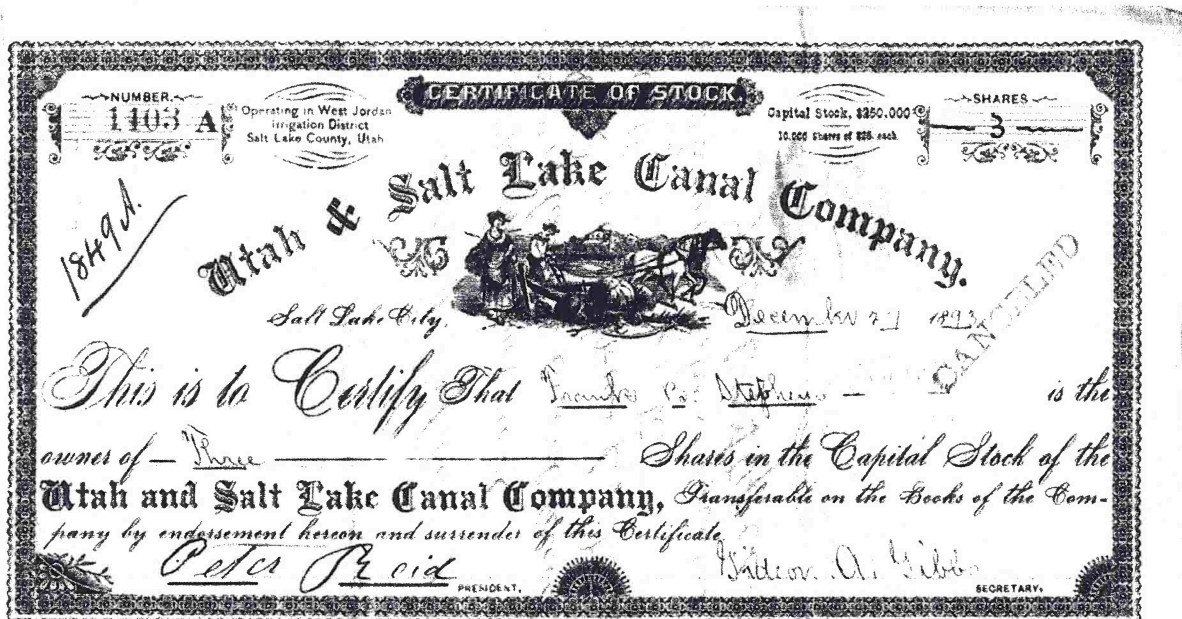 CERTIFICATE OF STOCK.
NUMBER.
1103 A
Operating in West Jordan
Irrigation District
Salt Lake County, Utah
Capital Stock, $250,000
10,000 Shares of $25 each
SHARES
3
1849 A.
Utah & Salt Lake Canal Company.
Salt Lake City, December 27 1893
CANCELED
This is to Certify That Frank B. Stephens is the
owner of Three Shares in the Capital Stock of the
Utah and Salt Lake Canal Company, Transferable on the Books of the Com-
pany by endorsement hereon and surrender of this Certificate
Peter Reid PRESIDENT, Gideon A. Gibbs SECRETARY,